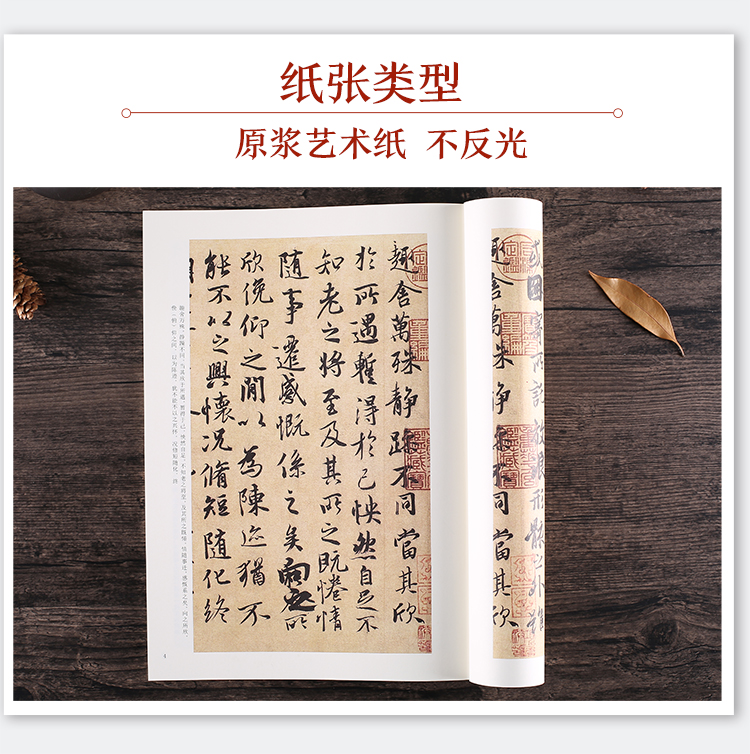 纸张类型
原浆艺术纸 不反光
或因寄所託放浪形骸之外雖
趣舍萬殊静躁不同當其欣
趣舍萬殊静躁不同當其欣
於所遇蹔得於己怏然自足不
知老之將至及其所之既惓情
随事遷感慨係之矣向之所
欣俛仰之閒以為陳迹猶不
能不以之興懷况脩短随化終